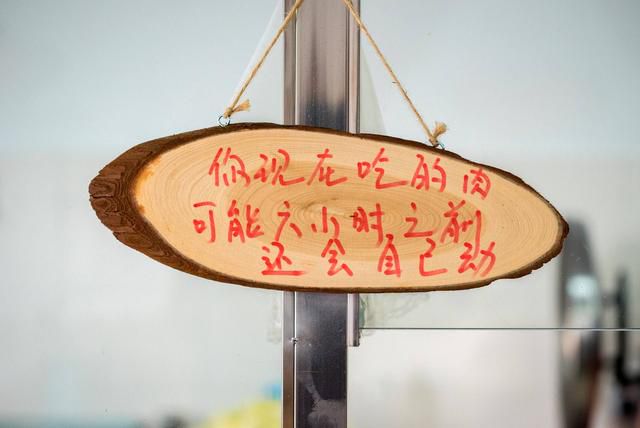 你现在吃的肉
可能六小时之前
还会自己动